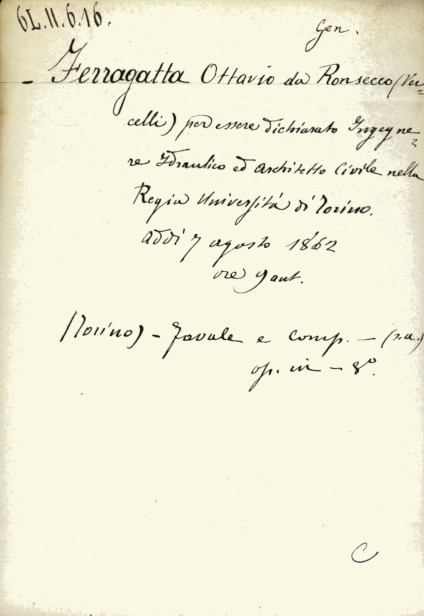 6L.II.6.16.
Gen.
- Ferragatta Ottavio da Ronsecco (Ver=
celli) per essere dichiarato Ingegne=
re Idraulico ed Architetto Civile nella
Regia Università di Torino.
addì 7 agosto 1862
ore 9 ant.
(Torino) - Favale e comp. - (s.a.)
op. in - 8°.
C